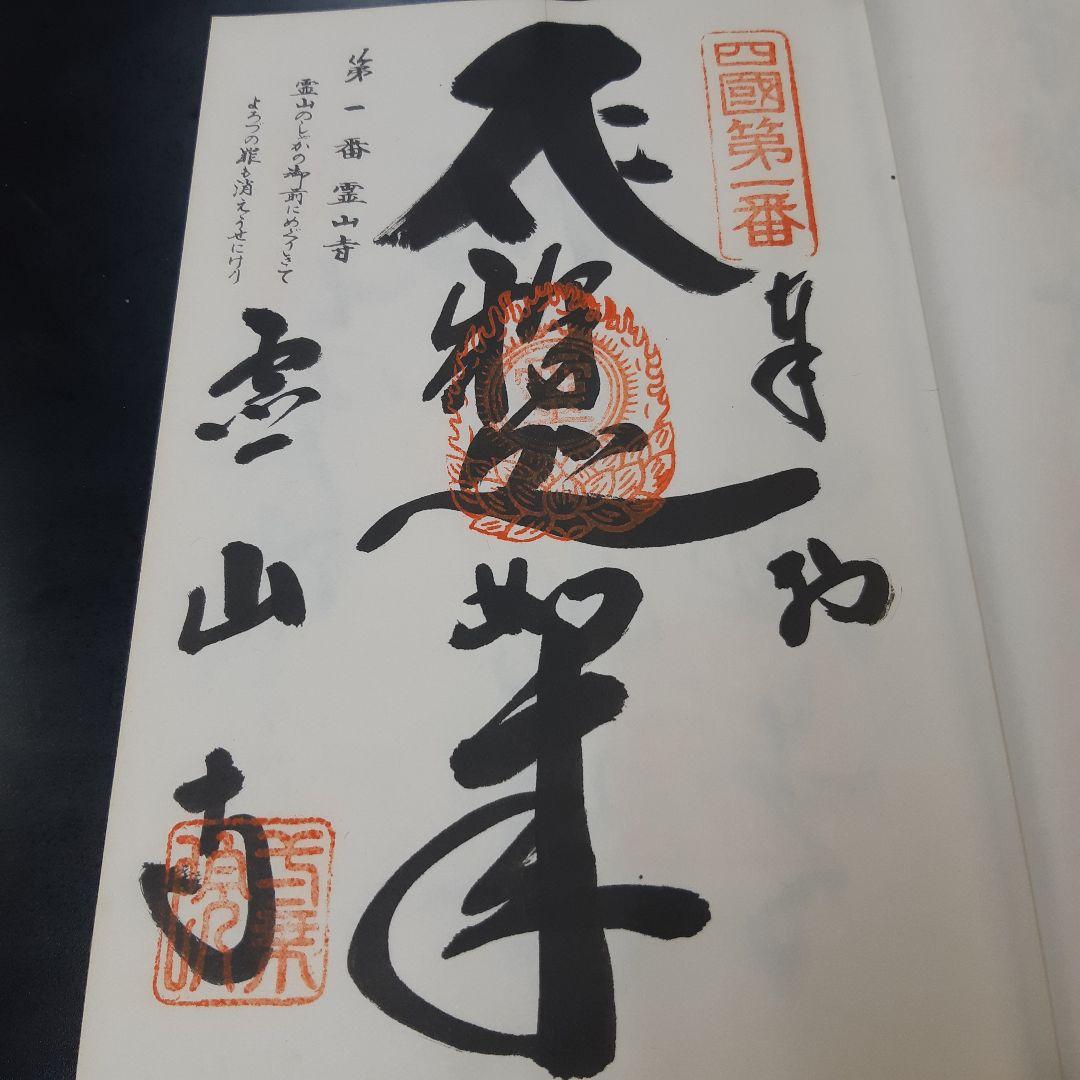 四國第一番
奉納
釋迦如来
第一番霊山寺
霊山のしゃかの御前にめぐりきて
よろづの罪も消えうせにけり
霊山寺